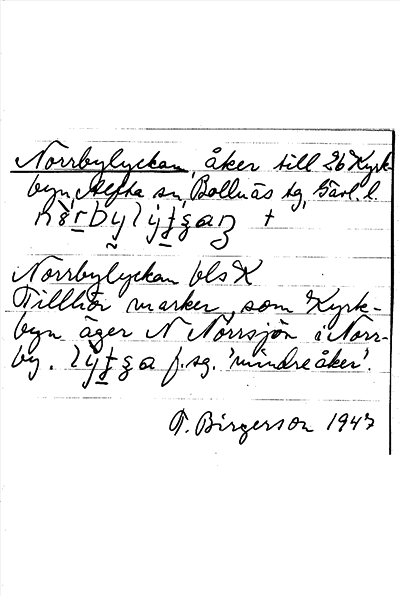 Norrbylyckan, åker till 26 Kyrk-
byn, Alfta sn, Bollnäs tg, Gävl. l.
Norrbylyckan bls K
Tillhör marker, som Kyrk-
byn äger N Norrsjön i Norr-
by. f. sg. 'mindre åker'.
T. Birgerson 1947